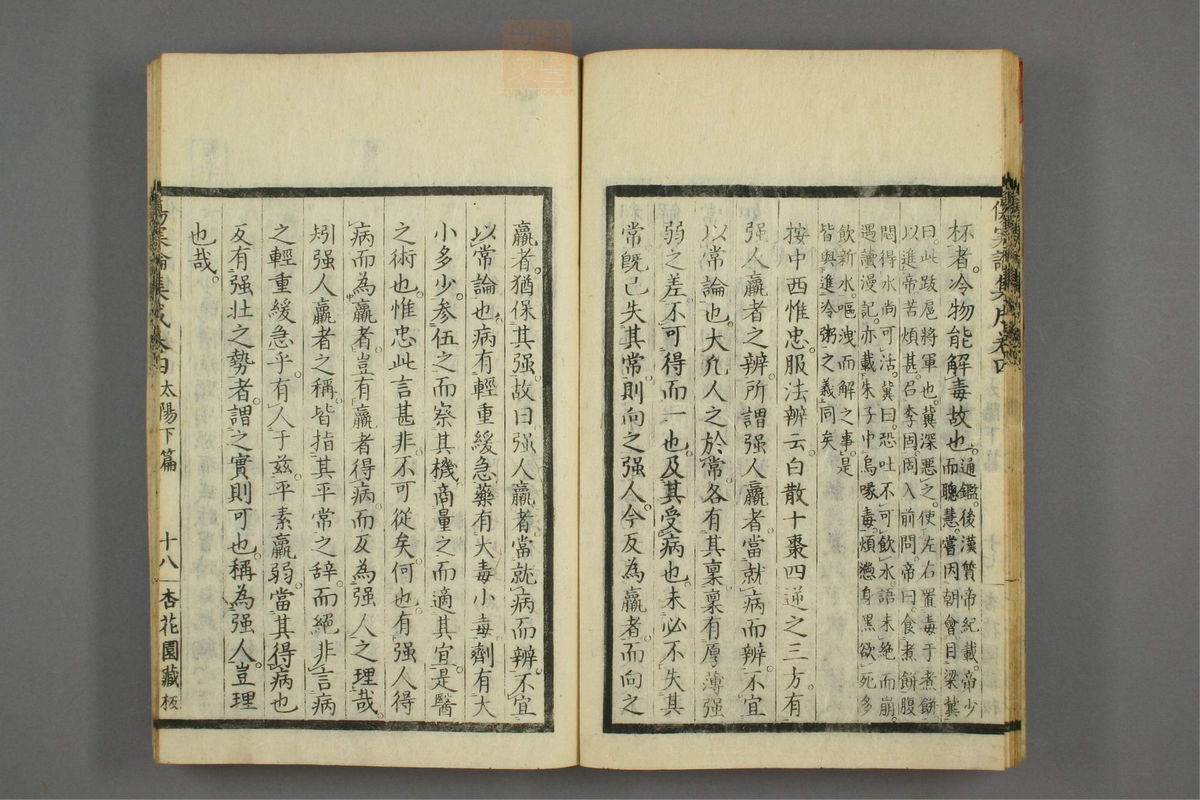 杯者冷物能解毒故也通鑑後漢質帝紀載帝少
而聰慧嘗因朝會目梁冀
曰此跋扈將軍也冀深惡之使左右置毒于煮餅
以進帝苦煩甚召李固固入前問帝曰食煮餅腹
悶得水尚可活冀曰恐吐不可飲水語未絶而崩
遇讀漫記亦載朱子中烏喙毒煩懣身黑欲死多
飲新水嘔洩而解之事是
皆與進冷粥之義同矣
按中西惟忠服法辨云白散十棗四逆之三方有
强人羸者之辨所謂强人羸者當就病而辨不宜
以常論也大凢人之於常各有其稟稟有厚薄强
弱之差不可得而一也及其受病也未必不失其
常旣已失其常則向之强人今反為羸者而向之
羸者猶保其强故曰强人羸者當就病而辨不宜
以常論也病有輕重緩急藥有大毒小毒劑有大
小多少參伍之而察其機商量之而適其宜是醫
之術也惟忠此言甚非不可從矣何也有强人得
病而為羸者豈有羸者得病而反為强人之理哉
矧强人羸者之稱皆指其平常之辞而絕非言病
之輕重緩急乎有人于兹平素羸弱當其得病也
反有强壯之勢者謂之實則可也稱為强人豈理
也哉
傷寒論集成卷四 太陽下篇 十八 杏花園藏板